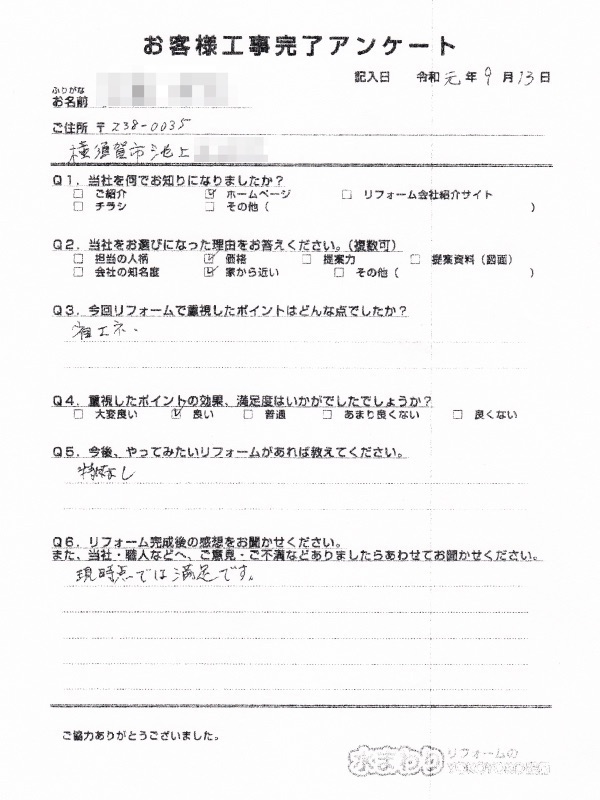 お客様工事完了アンケート
記入日 令和元年9月13日
ふりがな
お名前
ご住所 〒238-0035
横須賀市池上
Q1．当社を何でお知りになりましたか？
□ ご紹介 ☑ ホームページ □ リフォーム会社紹介サイト
□ チラシ □ その他（ ）
Q2．当社をお選びになった理由をお答えください。（複数可）
□ 担当の人柄 ☑ 価格 □ 提案力 □ 提案資料（図面）
□ 会社の知名度 ☑ 家から近い □ その他（ ）
Q3．今回リフォームで重視したポイントはどんな点でしたか？
省エネ、
Q4．重視したポイントの効果、満足度はいかがでしたでしょうか？
□ 大変良い ☑ 良い □ 普通 □ あまり良くない □ 良くない
Q5．今後、やってみたいリフォームがあれば教えてください。
特になし
Q6．リフォーム完成後の感想をお聞かせください。
また、当社・職人などへ、ご意見・ご不満などありましたらあわせてお聞かせください。
現時点では満足です。
ご協力ありがとうございました。
水まわり リフォームの